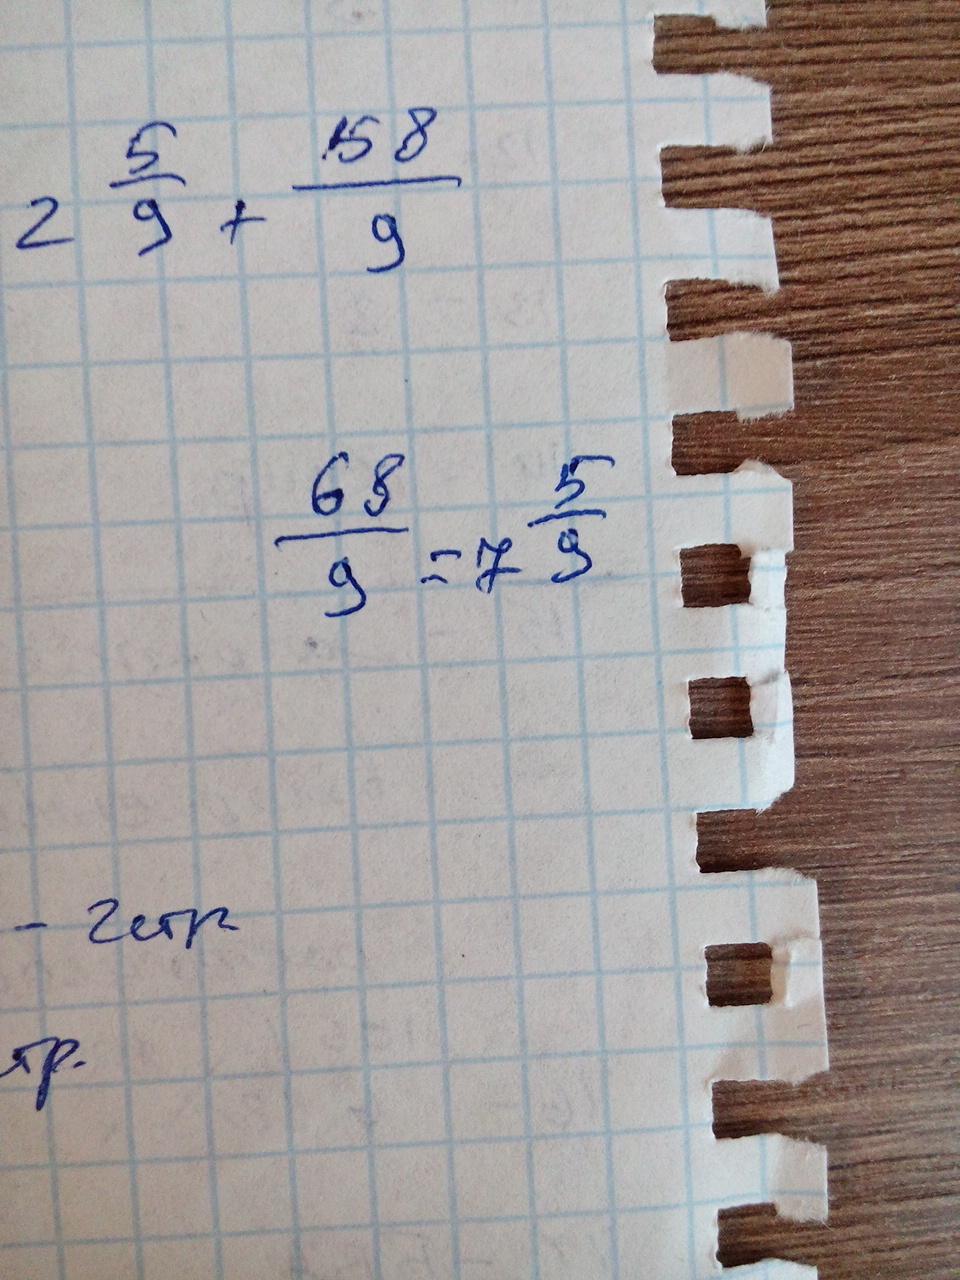 2 5/9 + 158/9
68/9 = 7 5/9
- 2 стр
тр.